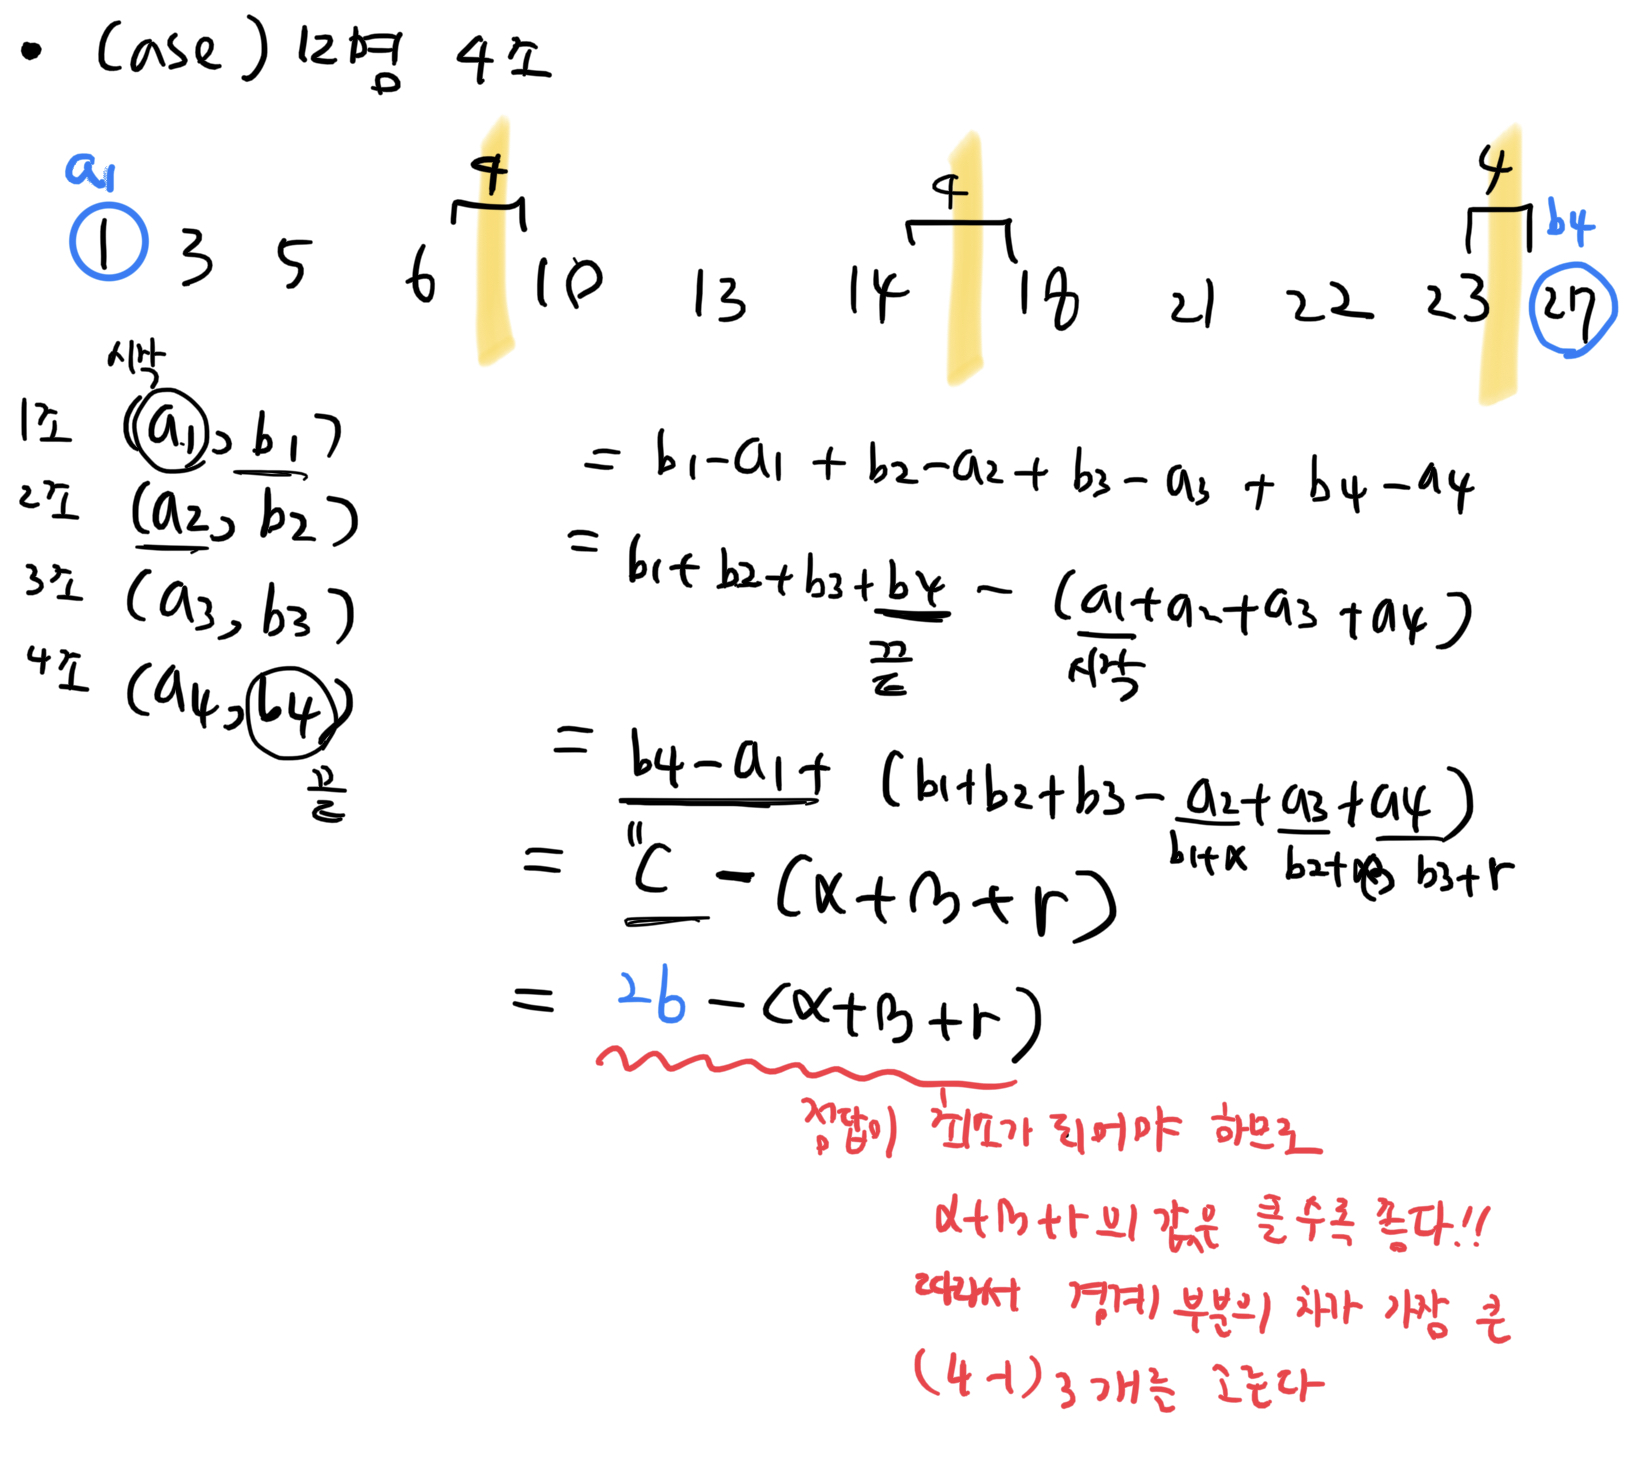 • Case) 12명 4조
a1 4 4 4 b4
1 3 5 6 10 13 14 18 21 22 23 27
시작
1조 (a1, b1)
2조 (a2, b2)
3조 (a3, b3)
4조 (a4, b4)
끝
= b1-a1 + b2-a2 + b3-a3 + b4-a4
= b1+b2+b3+b4 - (a1+a2+a3+a4)
끝 시작
= b4-a1+ (b1+b2+b3-a2+a3+a4)
b1+α b2+β b3+r
= "C - (α+β+r)
= 26 - (α+β+r)
정답이 최소가 되어야 하므로
α+β+r의 값은 클수록 좋다!!
따라서 경계 부분의 차가 가장 큰
(4-1) 3개를 고른다